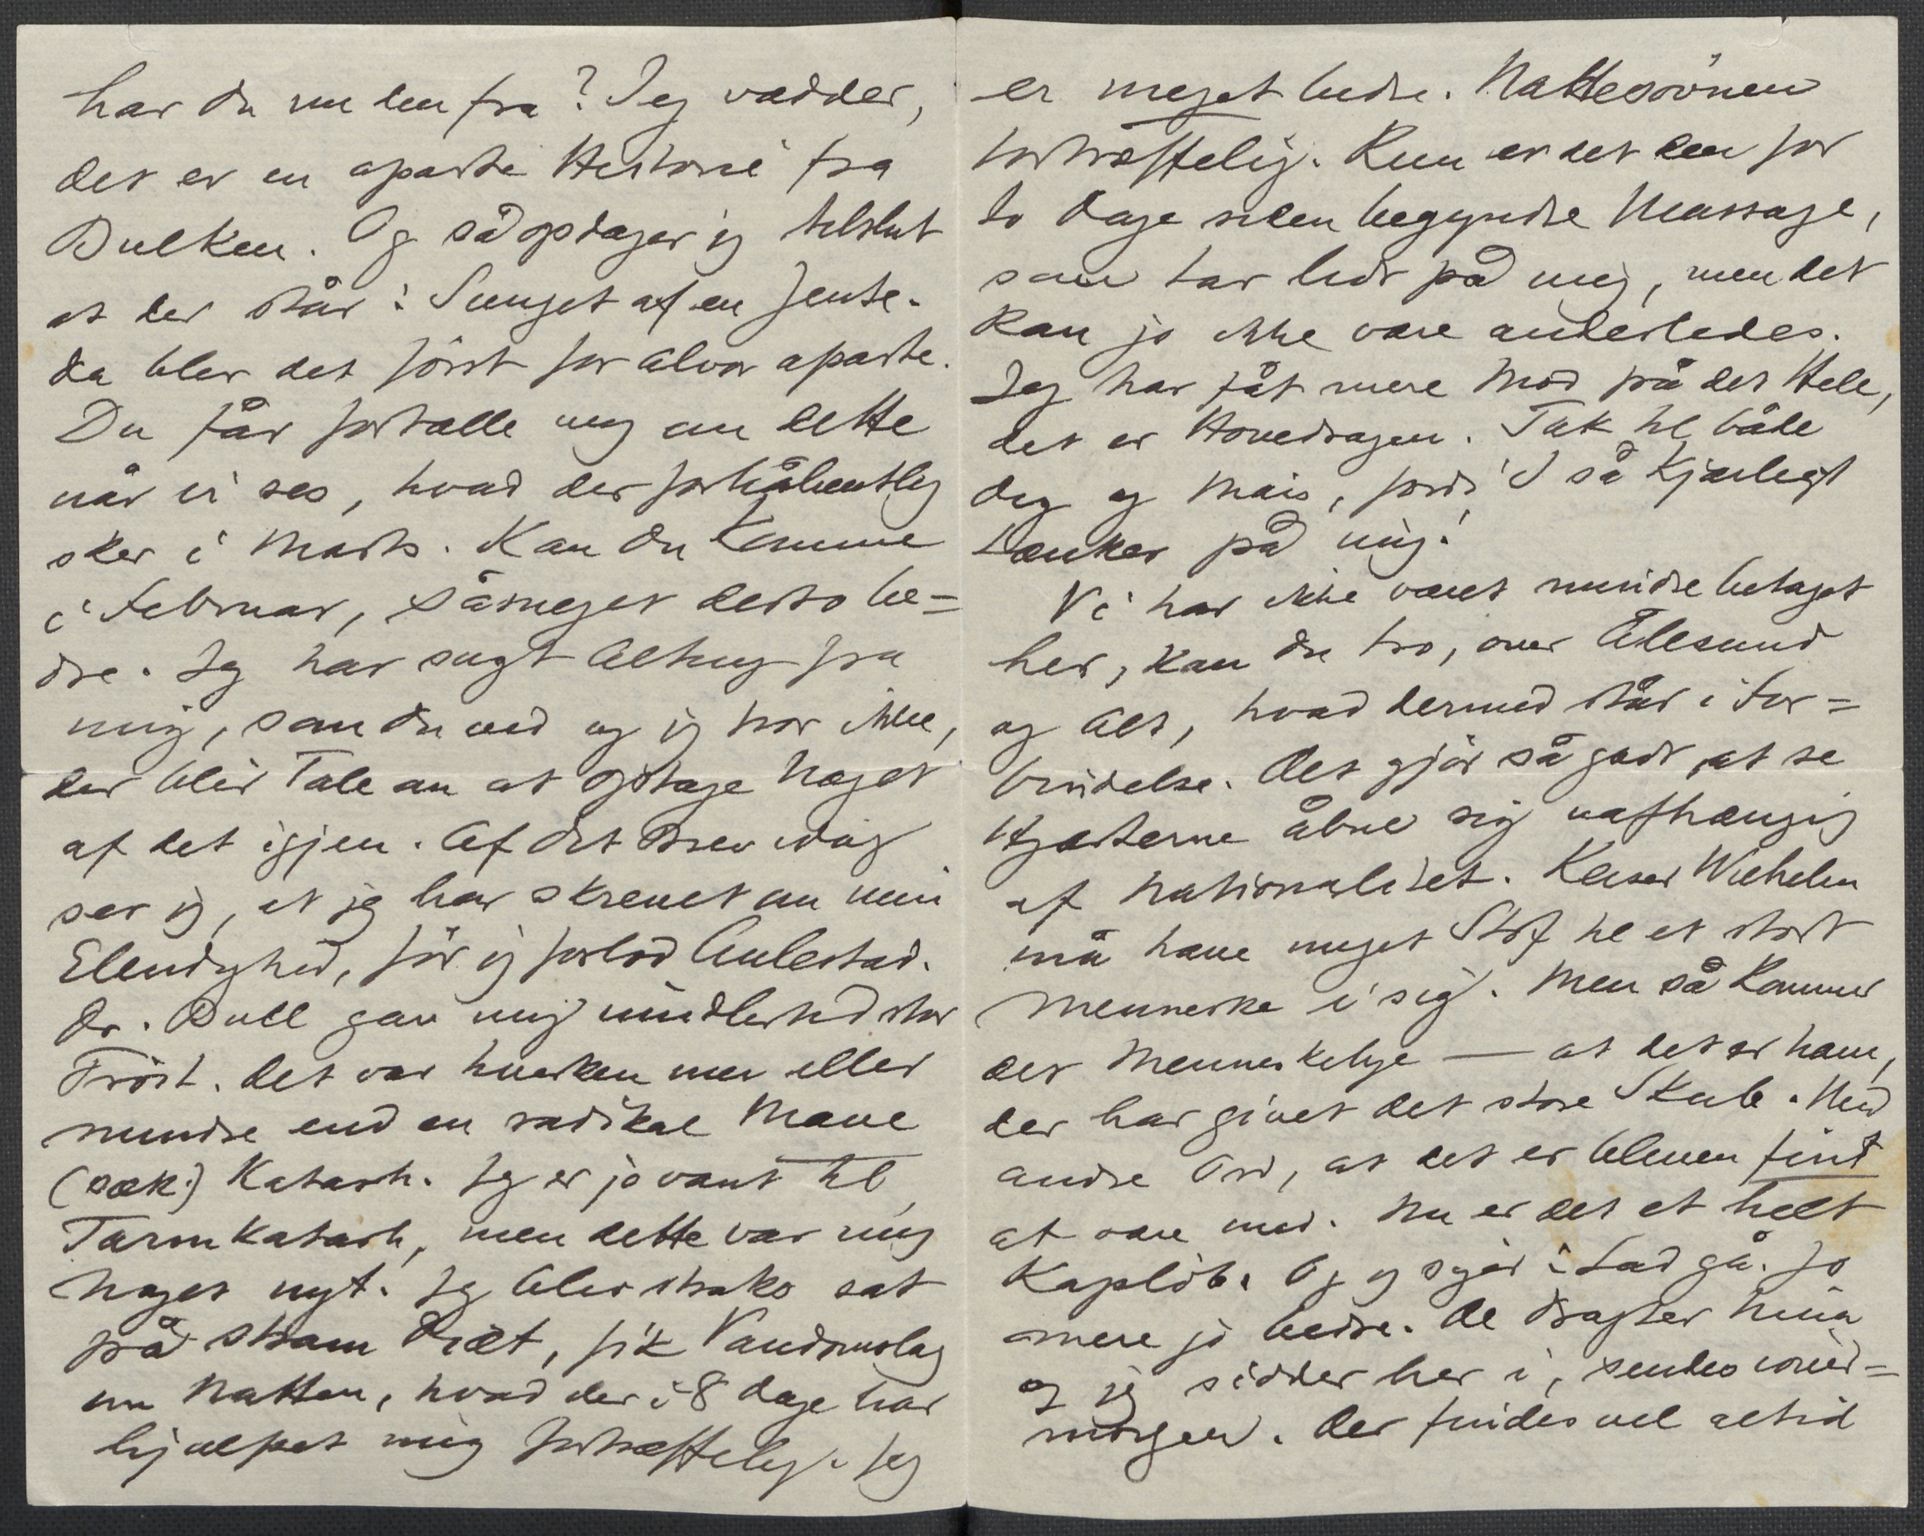 har du nu den fra? Jeg vædder,
det er en aparte Historie fra
Bulken. Og så opdager jeg tilslut
at der står: Sunget af en Jente.
da blev det först for alvor aparte.
Du får fortælle mig om dette
når vi ses, hvad der forhåbentlig
sker i Marts. Kan du komme
i Februar, såmeget desto be=
dre. Jeg har sagt Alting fra
mig, som du ved og jeg tror ikke,
der blir Tale om at optage Noget
af det igjen. Af dit Brev idag
ser jeg, at jeg har skrevet om min
Elendighed, för jeg forlod Aulestad.
Dr. Bull gav mig imidlertid stor
Tröst. Det var hverken mer eller
mindre end en radikal Mave
(sæk.) Katarrh. Jeg er jo vant til
Tarmkatarrh, men dette var mig
noget nyt. Jeg blev straks sat
på stram Diæt, fik Vandomslag
om Natten, hvad der i 8 Dage har
hjulpet mig fortræffelig. Jeg
er meget bedre. Nattesövnen
fortræffelig. Kun er det den for
to Dage siden begyndte Massage,
som tar lidt på mig, men det
kan jo ikke være anderledes.
Jeg har fåt mere Mod på det Hele,
det er Hovedsagen. Tak til både
dig og Mais, fordi I så kjærligt
tænker på mig!
Vi har ikke været mindre betaget
her, kan du tro, over Ålesund
og Alt, hvad dermed står i For=
bindelse. Det gjör så godt, at se
Hjerterne åbne sig uafhængig
af Nationalitet. Keiser Wilhelm
må have meget Stof til et stort
Menneske i sig. Men så kommer
det Menneskelige — at det er ham,
der har givet det store Skub. Med
andre Ord, at det er bleven fint
at være med. Nu er det et helt
Kaplöb. Og jeg siger: Lad gå. Jo
mere jo bedre. De Dragter Nina
og jeg sidder her i, sendes iover=
morgen. Der findes vel altid